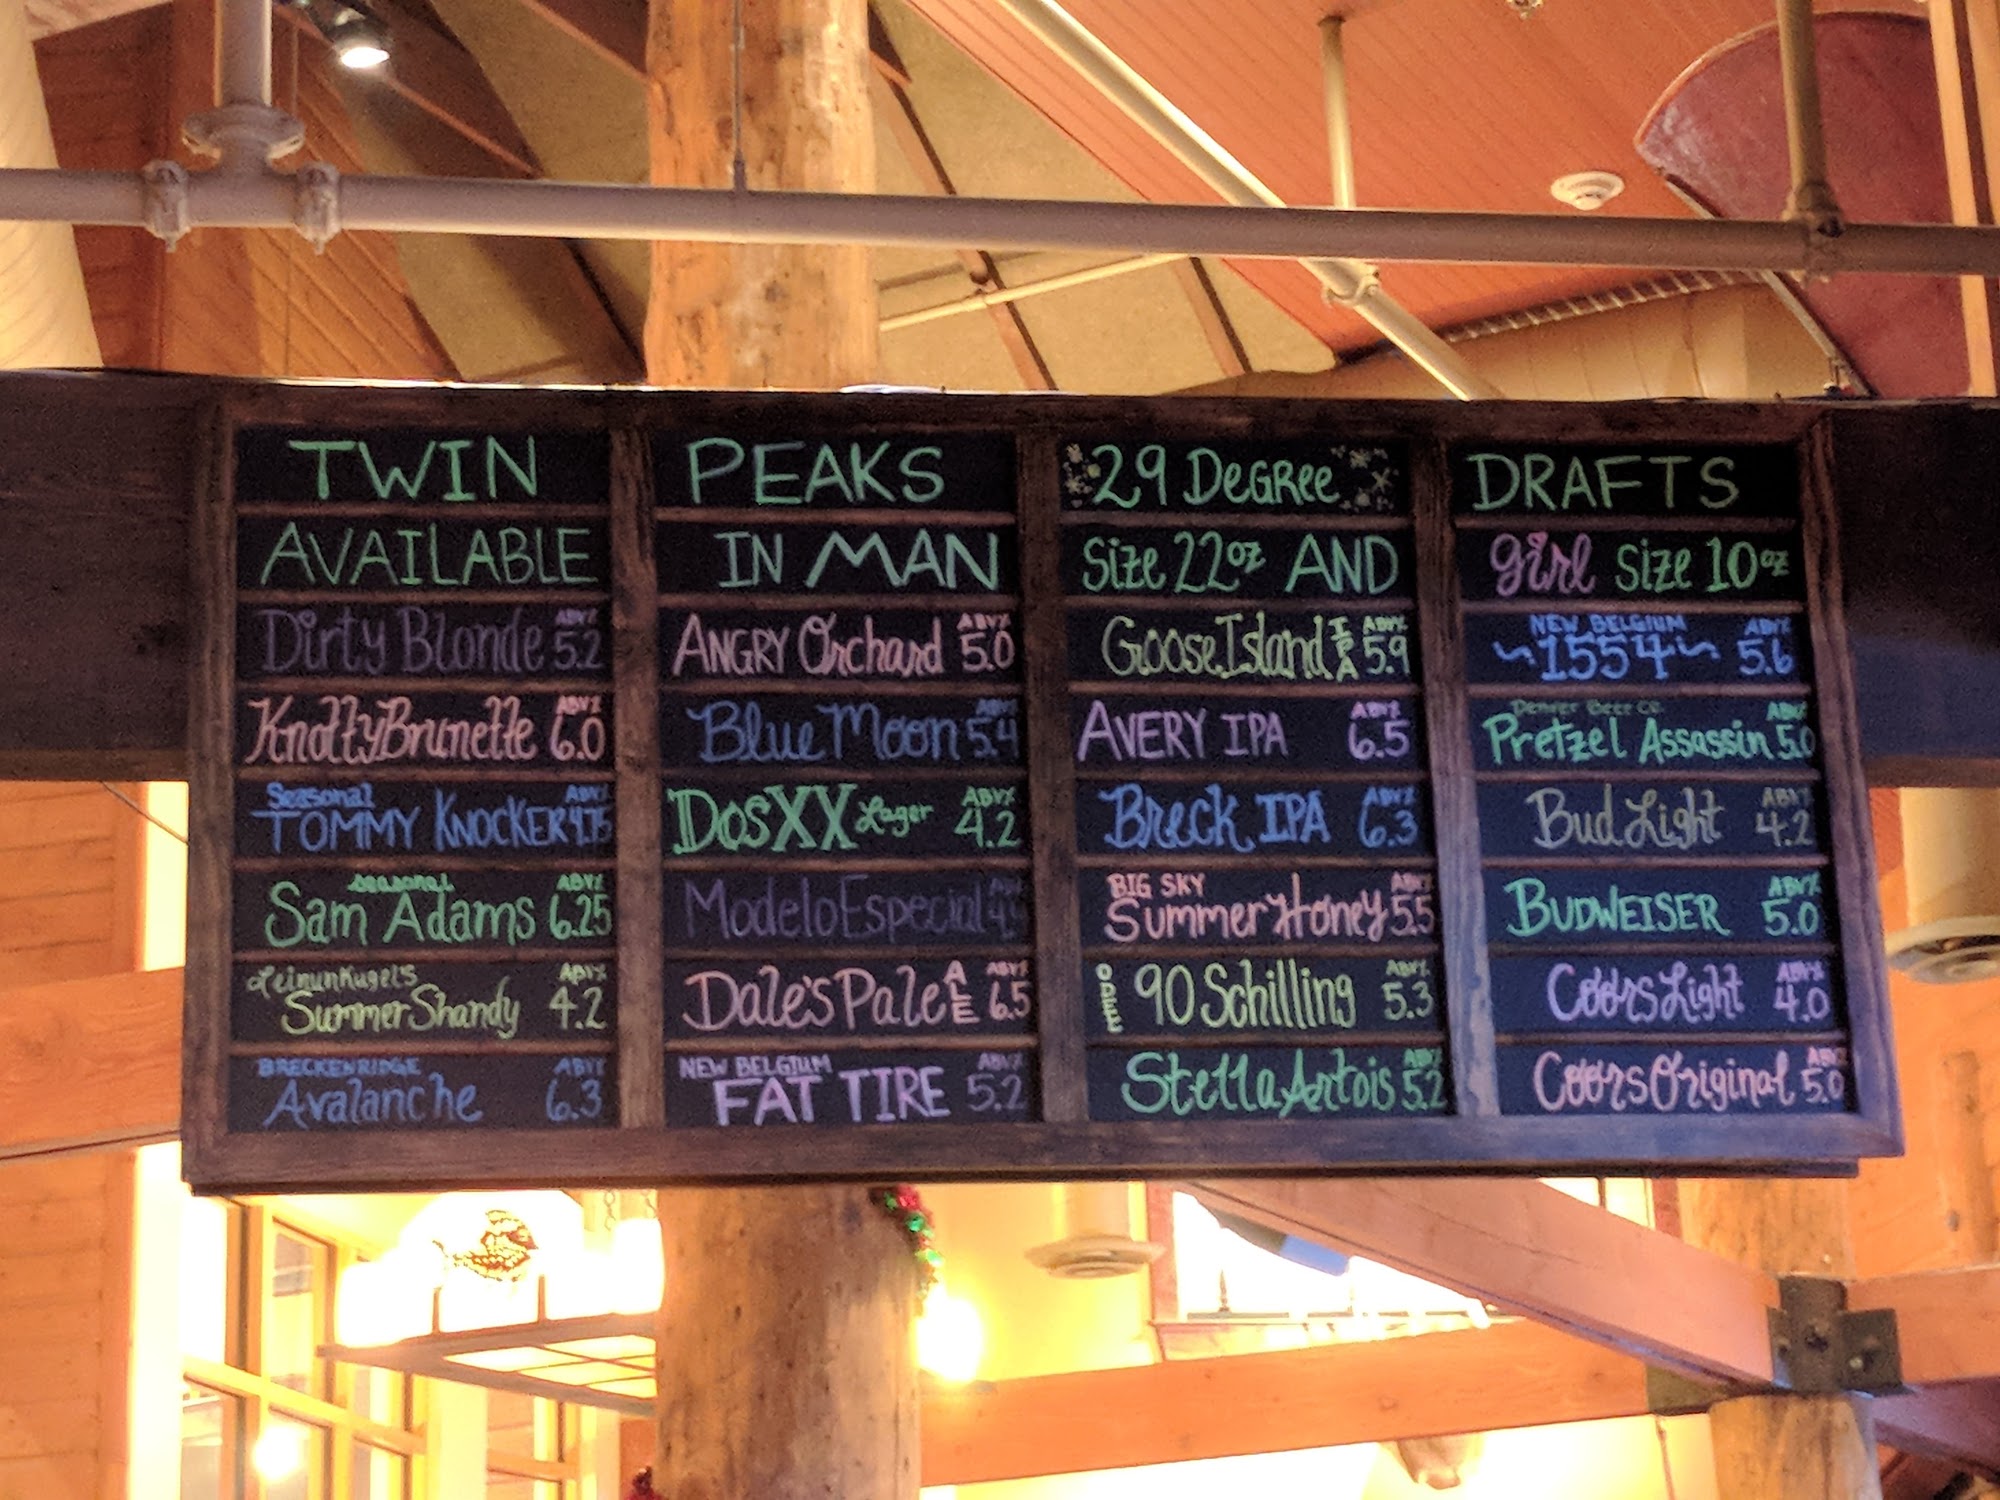 TWIN PEAKS 29 DeGRee DRAFTS
AVAILABLE IN MAN Size 22oz AND girl size 10oz
Dirty Blonde ABV% 5.2
Knotty Brunette ABV% 6.0
Seasonal
TOMMY KNOCKER ABV% 4.75
seasonal
Sam Adams ABV% 6.25
LeinunKugel's
Summer Shandy ABV% 4.2
BRECKENRIDGE
Avalanche ABV% 6.3
ANGRY Orchard ABV% 5.0
Blue Moon ABV% 5.4
DosXX Lager ABV% 4.2
Modelo Especial
Dale's Pale ALE ABV% 6.5
NEW BELGIUM
FAT TIRE ABV% 5.2
Goose Island IPA ABV% 5.9
AVERY IPA ABV% 6.5
Breck IPA ABV% 6.3
BIG SKY
Summer Honey ABV% 5.5
ODELL 90 Schilling ABV% 5.3
Stella Artois ABV% 5.2
NEW BELGIUM
~1554~ ABV% 5.6
Denver Beer Co.
Pretzel Assassin ABV% 5.0
Bud Light ABV% 4.2
BUDWEISER ABV% 5.0
Coors Light ABV% 4.0
Coors Original ABV% 5.0